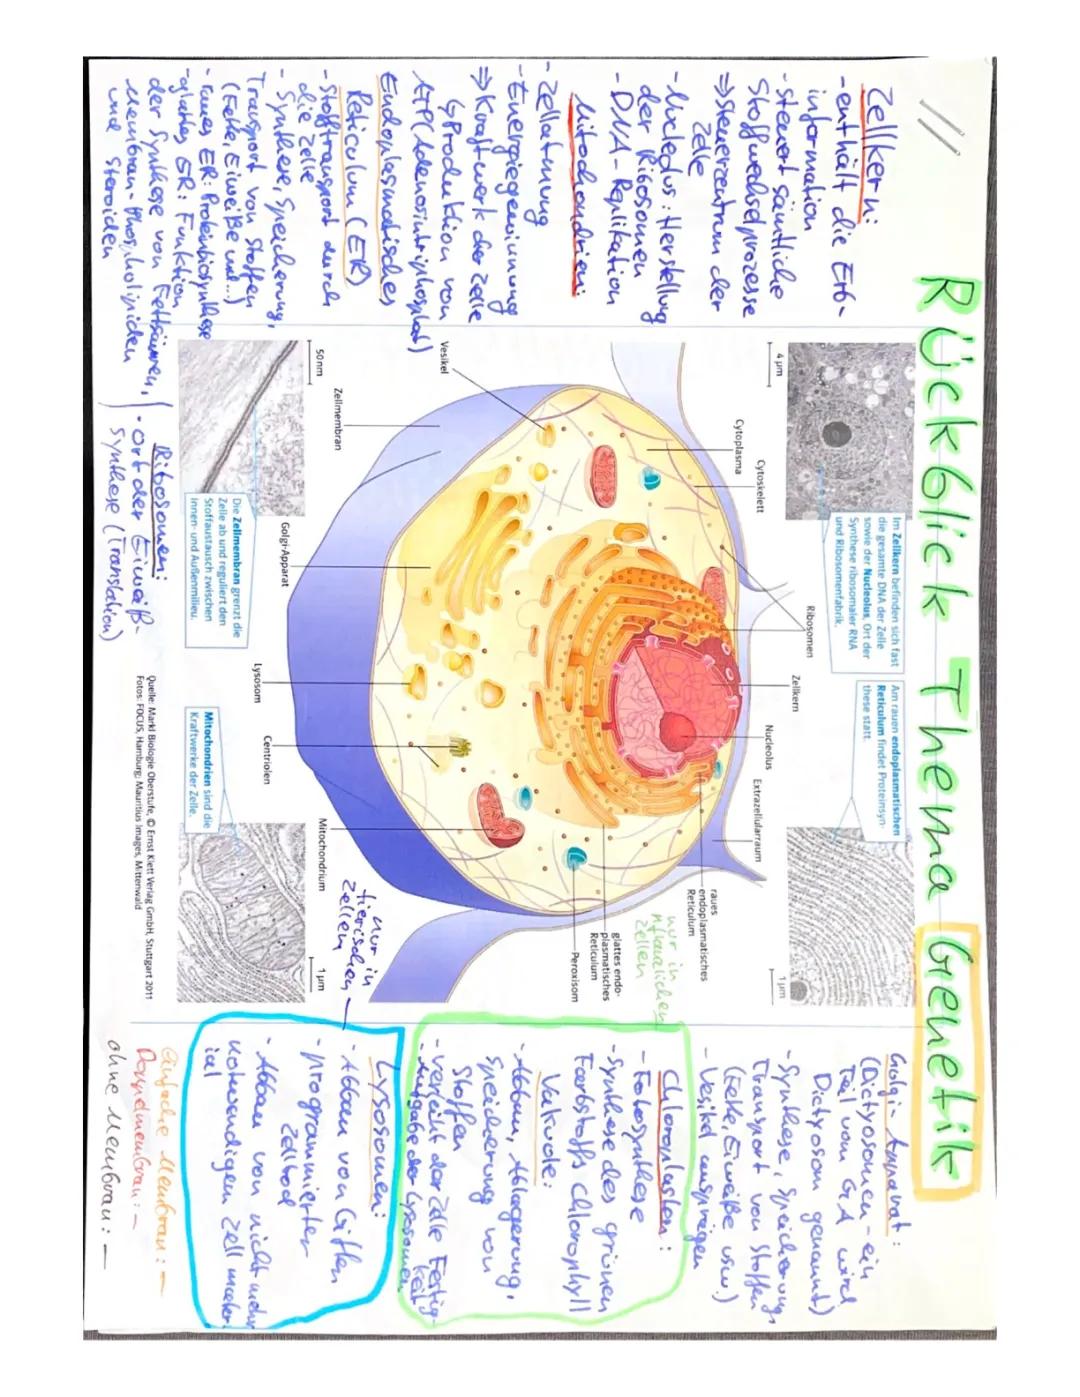 Rückblick Thema Genetik
Zellkern:
- enthält die Erb-
information
- steuert sämtliche
Stoffwechselprozesse
⇒ Steuerzentrum der
Zelle
- Nucleolus: Herstellung
der Ribosomen
- DNA-Replikation
Mitochondrien:
- Zellatmung
- Energiegewinnung
⇒ Kraftwerk der Zelle
↳ Produktion von
ATP (Adenosintriphosphat)
Endoplasmatisches
Reticulum (ER)
- Stofftransport durch
die Zelle
- Synthese, Speicherung,
Transport von Stoffen
(Fette, Eiweiße usw...)
- raues ER: Proteinbiosynthese
- glattes ER: Funktion
der Synthese von Fettsäuren,
Membran-Phospholipiden
und Steroiden
Ribosomen:
- Ort der Eiweiß-
synthese (Translation)
4 µm
Im Zellkern befinden sich fast
die gesamte DNA der Zelle
sowie der Nucleolus, Ort der
Synthese ribosomaler RNA
und Ribosomenfabrik.
Am rauen endoplasmatischen
Reticulum findet Proteinsyn-
these statt.
1 µm
Cytoplasma
Cytoskelett
Ribosomen
Zellkern
Nucleolus
Extrazellularraum
raues
endoplasmatisches
Reticulum
nur in
pflanzlichen
Zellen
glattes endo-
plasmatisches
Reticulum
Peroxisom
Vesikel
Zellmembran
Golgi-Apparat
Lysosom
Centriolen
Mitochondrium
nur in
tierischen
Zellen
50 nm
Die Zellmembran grenzt die
Zelle ab und reguliert den
Stoffaustausch zwischen
Innen- und Außenmilieu.
Mitochondrien sind die
Kraftwerke der Zelle.
1 µm
Quelle: Markl Biologie Oberstufe, © Ernst Klett Verlag GmbH, Stuttgart 2011
Fotos: FOCUS, Hamburg; Mauritius Images, Mittenwald
Golgi-Apparat:
(Dictyosomen - ein
Teil vom GA wird
Dictyosom genannt)
- Synthese, Speicherung,
Transport von Stoffen
(Fette, Eiweiße usw.)
- Vesikel ausprägen
Chloroplasten:
- Fotosynthese
- Synthese des grünen
Farbstoffs Chlorophyll
Vakuole:
- Abbau, Ablagerung,
Speicherung von
Stoffen
- verleiht der Zelle Festig-
keit
- Aufgabe der Lysosomen
Lysosomen:
- Abbau von Giften
- programmierter
Zelltod
- Abbau von nicht mehr
notwendigen Zellmater-
ial
einfache Membran: –
Doppelmembran: –
ohne Membran: –